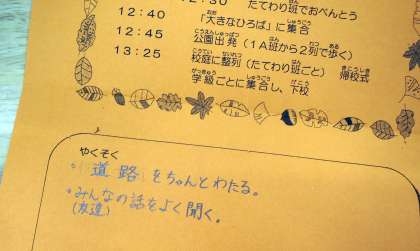 12:30 たてわり班でおべんとう
12:40 「大きなひろば」に集合
12:45 公園出発(1A班から2列で歩く)
13:25 校庭に整列(たてわり班ごと) 帰校式
学級ごとに集合し、下校
やくそく
・(道路)をちゃんとわたる。
・みんなの話をよく聞く。
(友達)